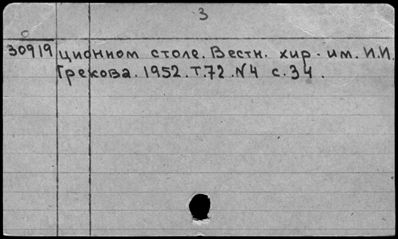 3
30919 ционном столе. Вестн. хир. им. И.И.
Грекова. 1952. Т.72. №4 с.34.